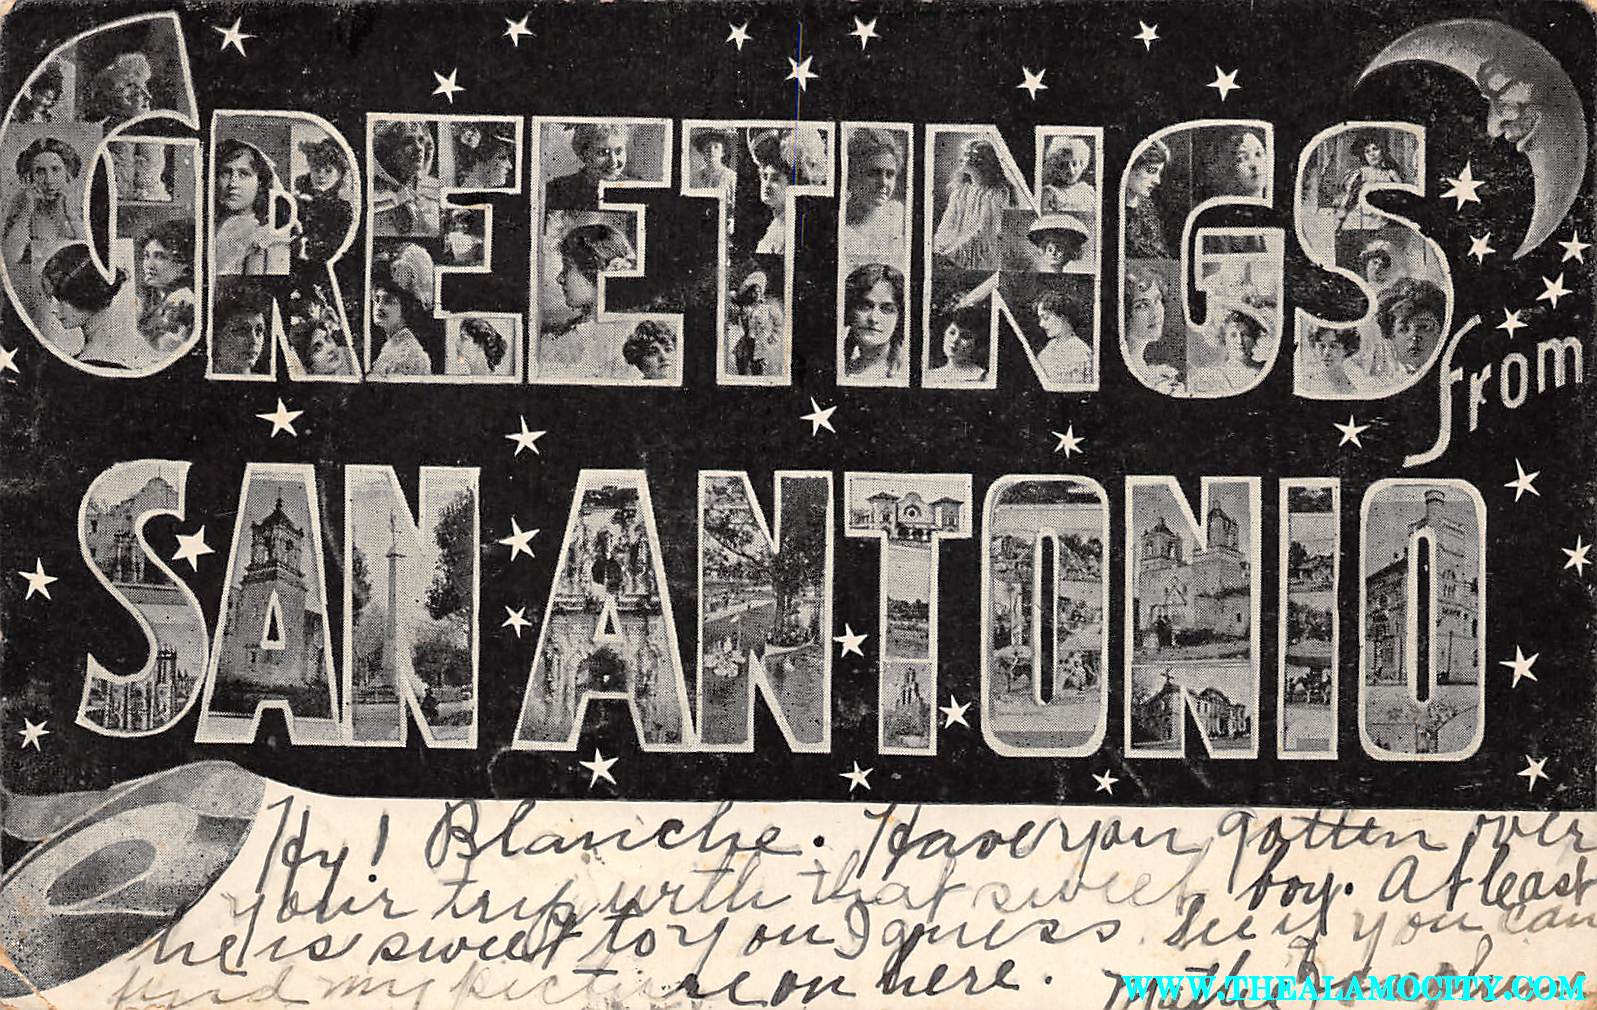 GREETINGS
from
SAN ANTONIO
Hy! Blanche. Have you gotten over
your trip with that sweet boy. At least
he is sweet to you I guess. See if you can
find my picture on here.
WWW.THEALAMOCITY.COM